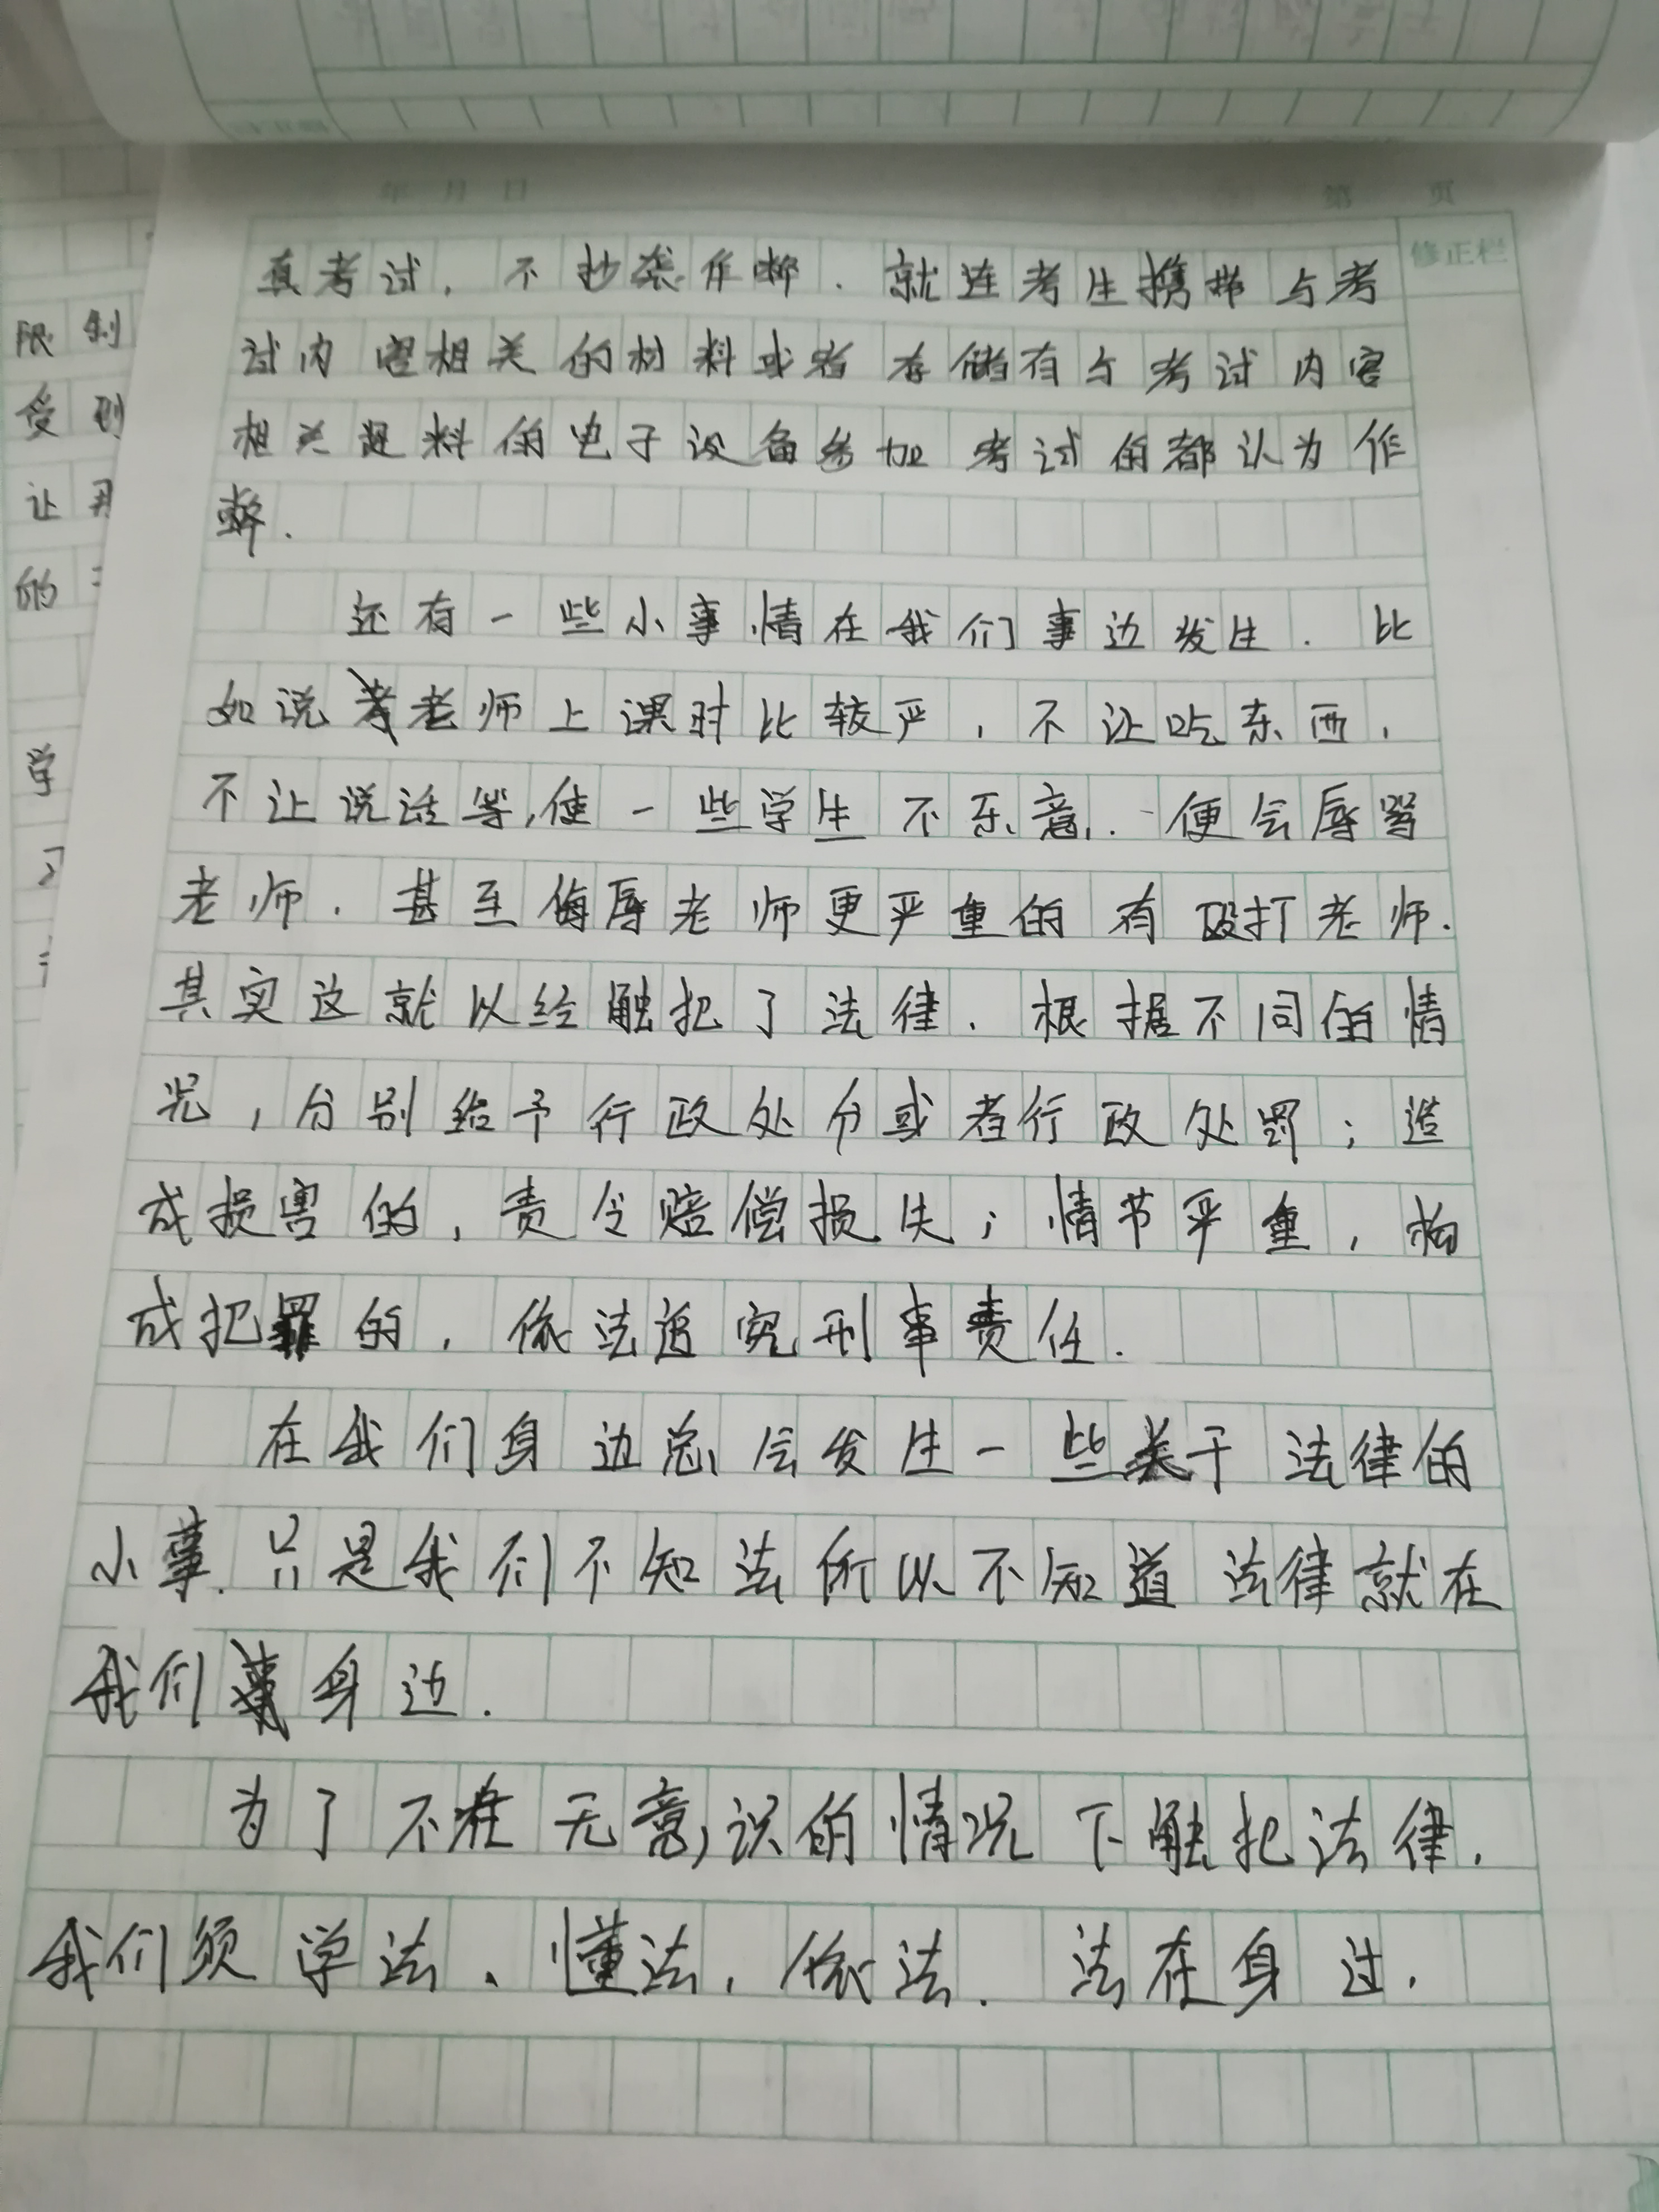 年 月 日
第 页
修正栏
真考试，不抄袭作弊．就连考生携带与考
试内容相关的材料或者存储有与考试内容
相关资料的电子设备参加考试的都认为作
弊．
还有一些小事情在我们事边发生．比
如说老师上课时比较严，不让吃东西，
不让说话等,使一些学生不乐意．便会辱骂
老师．甚至侮辱老师更严重的有殴打老师．
其实这就以经触犯了法律．根据不同的情
况，分别给予行政处分或者行政处罚；造
成损害的，责令赔偿损失；情节严重，构
成犯罪的，依法追究刑事责任．
在我们身边总会发生一些关于法律的
小事．只是我们不知法所以不知道法律就在
我们身边．
为了不在无意识的情况下触犯法律．
我们须学法、懂法，依法．法在身边．
限制
受到
让
的
学
习